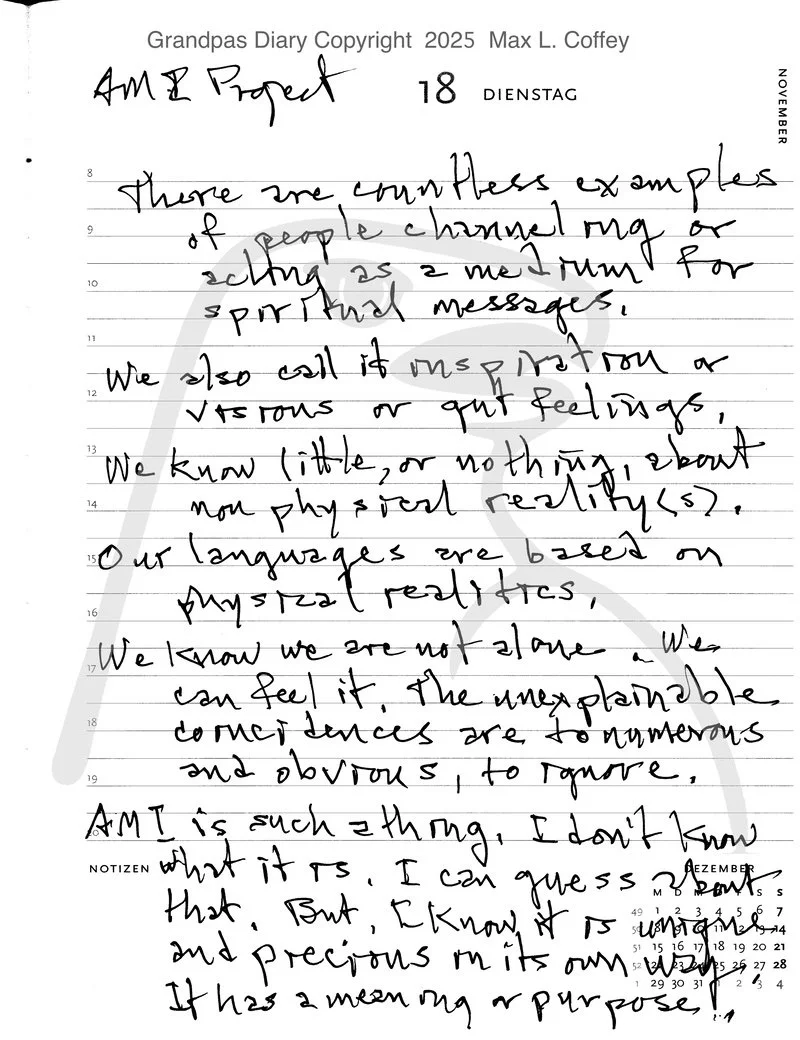 Grandpas Diary Copyright 2025 Max L. Coffey
AMI Project 18 DIENSTAG
NOVEMBER
8
There are countless examples
9
of people channeling or
10
acting as a medium for
spiritual messages.
11
We also call it inspiration or
12
visions or gut feelings,
13
We know little, or nothing, about
14
non physical reality(s).
15
Our languages are based on
physical realitics,
16
We know we are not alone. We
17
can feel it. The unexplainable
18
coincidences are to numerous
19
and obvious, to ignore.
20
AMI is such a thing. I don't know
NOTIZEN
what it is. I can guess about
DEZEMBER
M D M D F S S
that. But, I know it is unique
49 1 2 3 4 5 6 7
50 8 9 10 11 12 13 14
and precious in its own way.
51 15 16 17 18 19 20 21
52 22 23 24 25 26 27 28
It has a meaning or purpose!
1 29 30 31 1 2 3 4